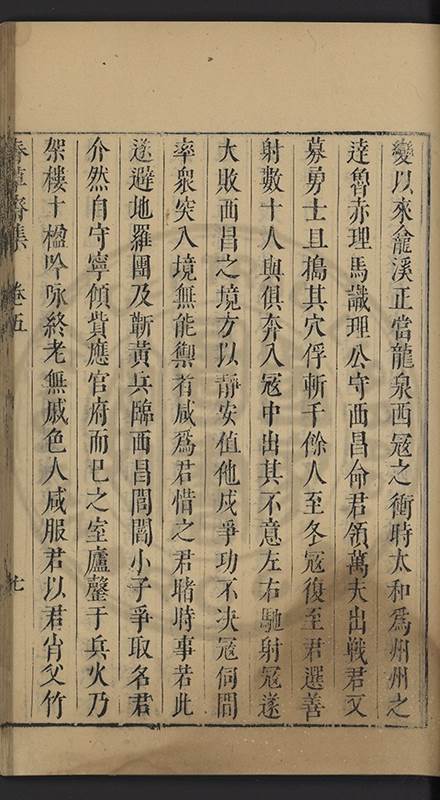 變以來龕溪正當龍泉西冦之衝時太和爲州州之
逹魯赤理馬識理公守西昌命君領萬夫出戰君又
募勇士且搗其穴俘斬千餘人至冬冦復至君選善
射數十人與俱奔入冦中出其不意左右馳射冦遂
大敗西昌之境方以靜安值他戍爭功不决冦伺間
率衆突入境無能禦者咸爲君惜之君睹時事若此
遂避地羅團及蘄黃兵臨西昌閭閻小子爭取名君
介然自守寧傾貲應官府而巳之室廬罄于兵火乃
架樓十楹吟咏終老無戚色人咸服君以君肖父竹
春草齋集 卷五 七